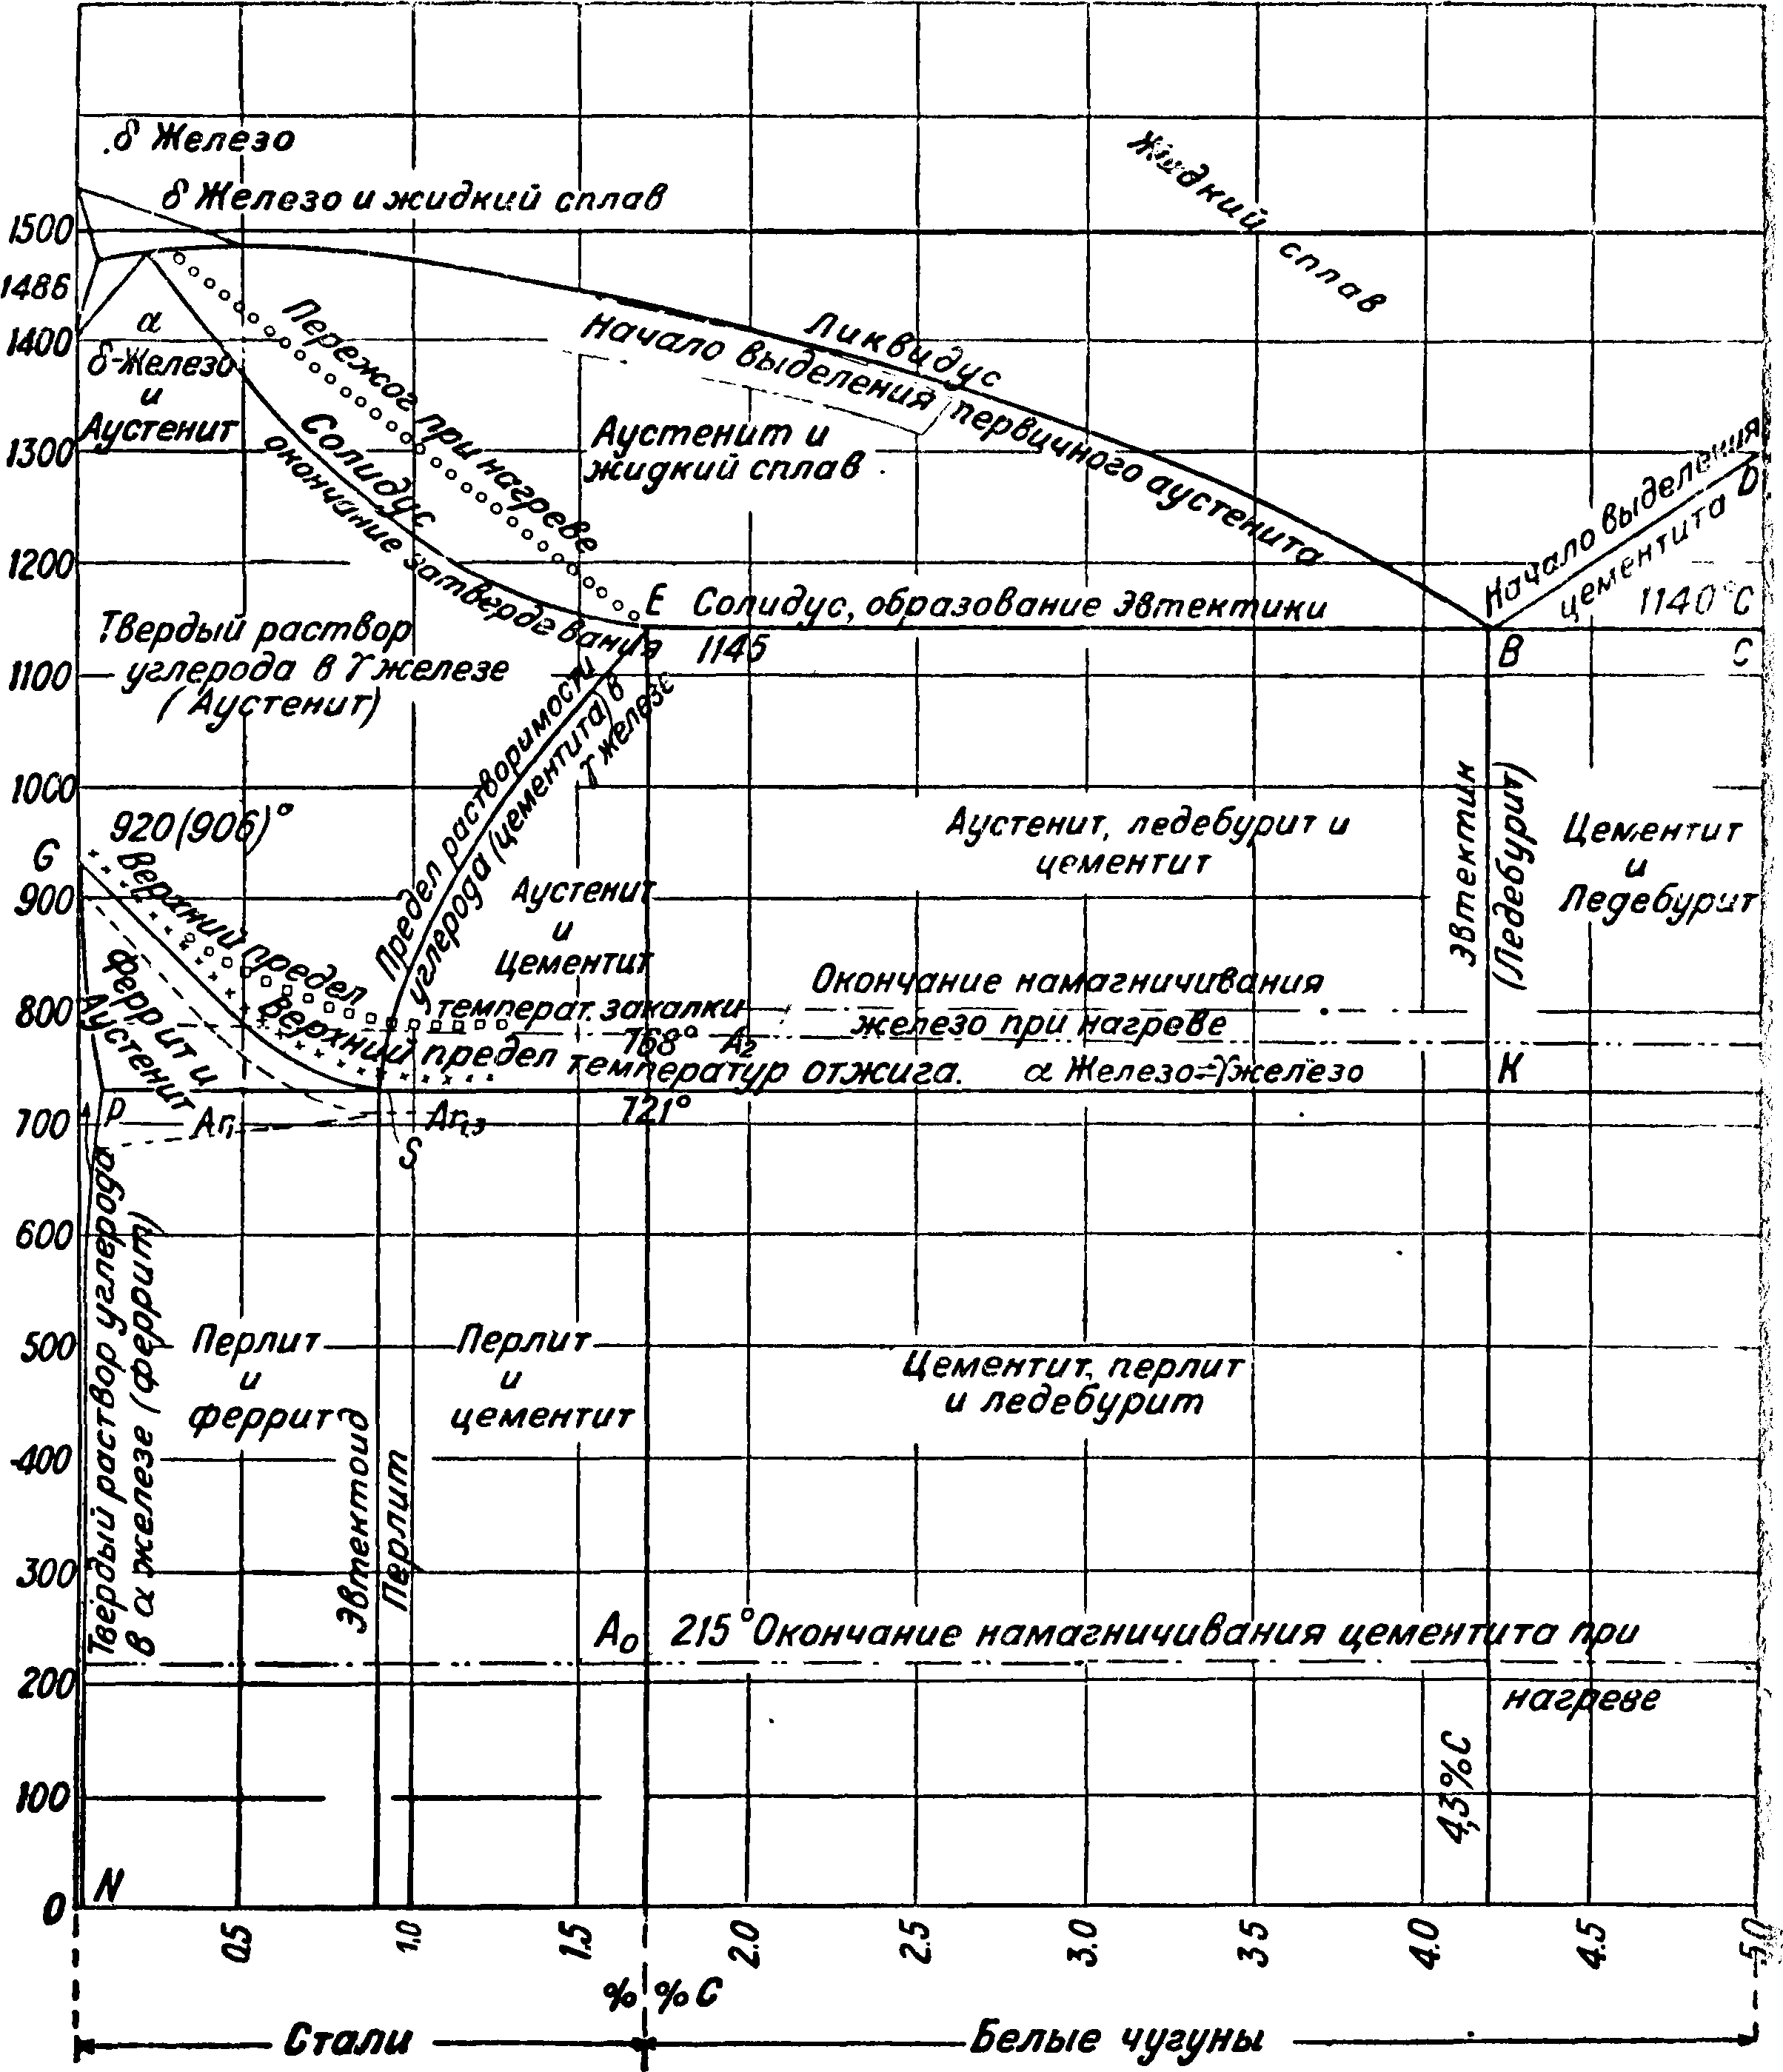 δ Железо
δ Железо и жидкий сплав
Жидкий сплав
1500
1486
1400
1300
1200
1100
1000
900
800
700
600
500
400
300
200
100
0
α
δ-Железо
и
Аустенит
Пережог при нагреве
Солидус
окончание затвердевания
Ликвидус
Начало выделения первичного аустенита
Аустенит и
жидкий сплав
Начало выделения
цементита
D
1140°C
E
Солидус, образование эвтектики
1145
B
C
Твердый раствор
углерода в γ железе
(Аустенит)
Предел растворимости
углерода (цементита) в
γ железе
920(906)°
G
Верхний предел
температ. закалки
Верхний предел температур отжига.
Феррит и
Аустенит
Аустенит
и
Цементит
Аустенит, ледебурит и
цементит
Эвтектик
(Ледебурит)
Цементит
и
Ледебурит
Окончание намагничивания
железо при нагреве
768° A2
α Железо⇌γ железо
K
P
Ar1
Ar1,3
721°
S
Твердый раствор углерода
в α железе (феррит)
Перлит
и
феррит
Перлит
и
цементит
Цементит, перлит
и ледебурит
Эвтектоид
Перлит
A0
215° Окончание намагничивания цементита при
нагреве
4,3%C
N
0.5
1.0
1.5
2.0
2.5
3.0
3.5
4.0
4.5
5.0
% %C
Стали
Белые чугуны